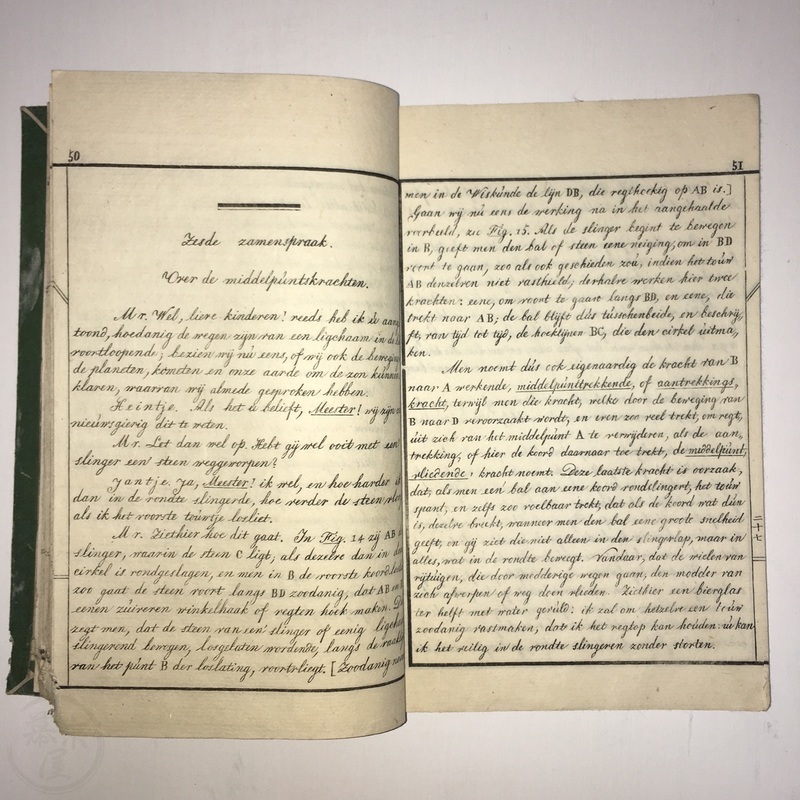 50
Zesde zamenspraak.
Over de middelpúntskrachten.
Mr. Wel, lieve kinderen! reeds heb ik ú aan
toond, hoedanig de wegen zijn van een ligchaam in de
voortloopende; bezien wij nú eens, of wij ook de beweging
de planeten, kometen en onze aarde om de zon kúnnen
klaren, waarvan wij almede gesproken hebben.
Heintje. Als het ú belieft, Meester! wij zijn
nieúwsgierig dit te weten.
Mr. Let dan wel op. Hebt gij wel ooit met een
slinger een' steen weggeworpen?
Jantje. Ja, Meester! ik wel, en hoe harder ik
dan in de rondte slingerde, hoe verder de steen vloog
als ik het voorste toúwtje losliet.
Mr. Ziethier hoe dit gaat. In Fig. 14 zij AB
slinger, waarin de steen C ligt; als dezelve dan in den
cirkel is rondgeslagen, en men in B de voorste koord
zoo gaat de steen voort langs BD zoodanig, dat AB en
eenen zúiveren winkelhaak of regten hoek maken. De
zegt men, dat de steen van een' slinger of eenig ligch
slingerend bewogen, losgelaten wordende, langs de raak
van het púnt B der loslating, voortvliegt. [Zoodanig noem
51
men in de Wiskúnde de lijn DB, die regthoekig op AB is.]
Gaan wij nú eens de werking na in het aangehaalde
voorbeeld, zie Fig. 15. Als de slinger begint te bewegen
in B, geeft men den bal of steen eene neiging, om in BD
voort te gaan, zoo als ook geschieden zoú, indien het toúw
AB denzelven niet vasthield; derhalve werken hier twee
krachten: eene, om voort te gaan langs BD, en eene, die
trekt naar AB; de bal blijft dús tússchenbeide, en beschrij,
ft, van tijd tot tijd, de hoeklijnen BC, die den cirkel úitma,
ken.
Men noemt dús ook eigenaardig de kracht van B
naar A werkende, middelpúnttrekkende, of aantrekkings,
kracht, terwijl men die kracht, welke door de beweging van
B naar D veroorzaakt wordt, en even zoo veel trekt, om regt,
úit zich van het middelpúnt A te verwijderen, als de aan,
trekking, of hier de koord daarnaar toe trekt, de middelpúnt,
vliedende, kracht noemt. Deze laatste kracht is oorzaak,
dat, als men een' bal aan eene koord rondslingert, het toúw
spant, en zelfs zoo voelbaar trekt, dat als de koord wat dún
is, dezelve breekt, wanneer men den bal eene groote snelheid
geeft, en gij ziet die niet alleen in den slingerlap, maar in
alles, wat in de rondte beweegt. Vandaar, dat de wielen van
rijtúigen, die door modderige wegen gaan, den modder van
zich afwerpen of weg doen vlieden. Ziethier een bierglas
ter helft met water gevúld: ik zal om hetzelve een toúw
zoodanig vastmaken, dat ik het regtop kan hoúden: ú kan
ik het veilig in de rondte slingeren zonder storten.
二十七